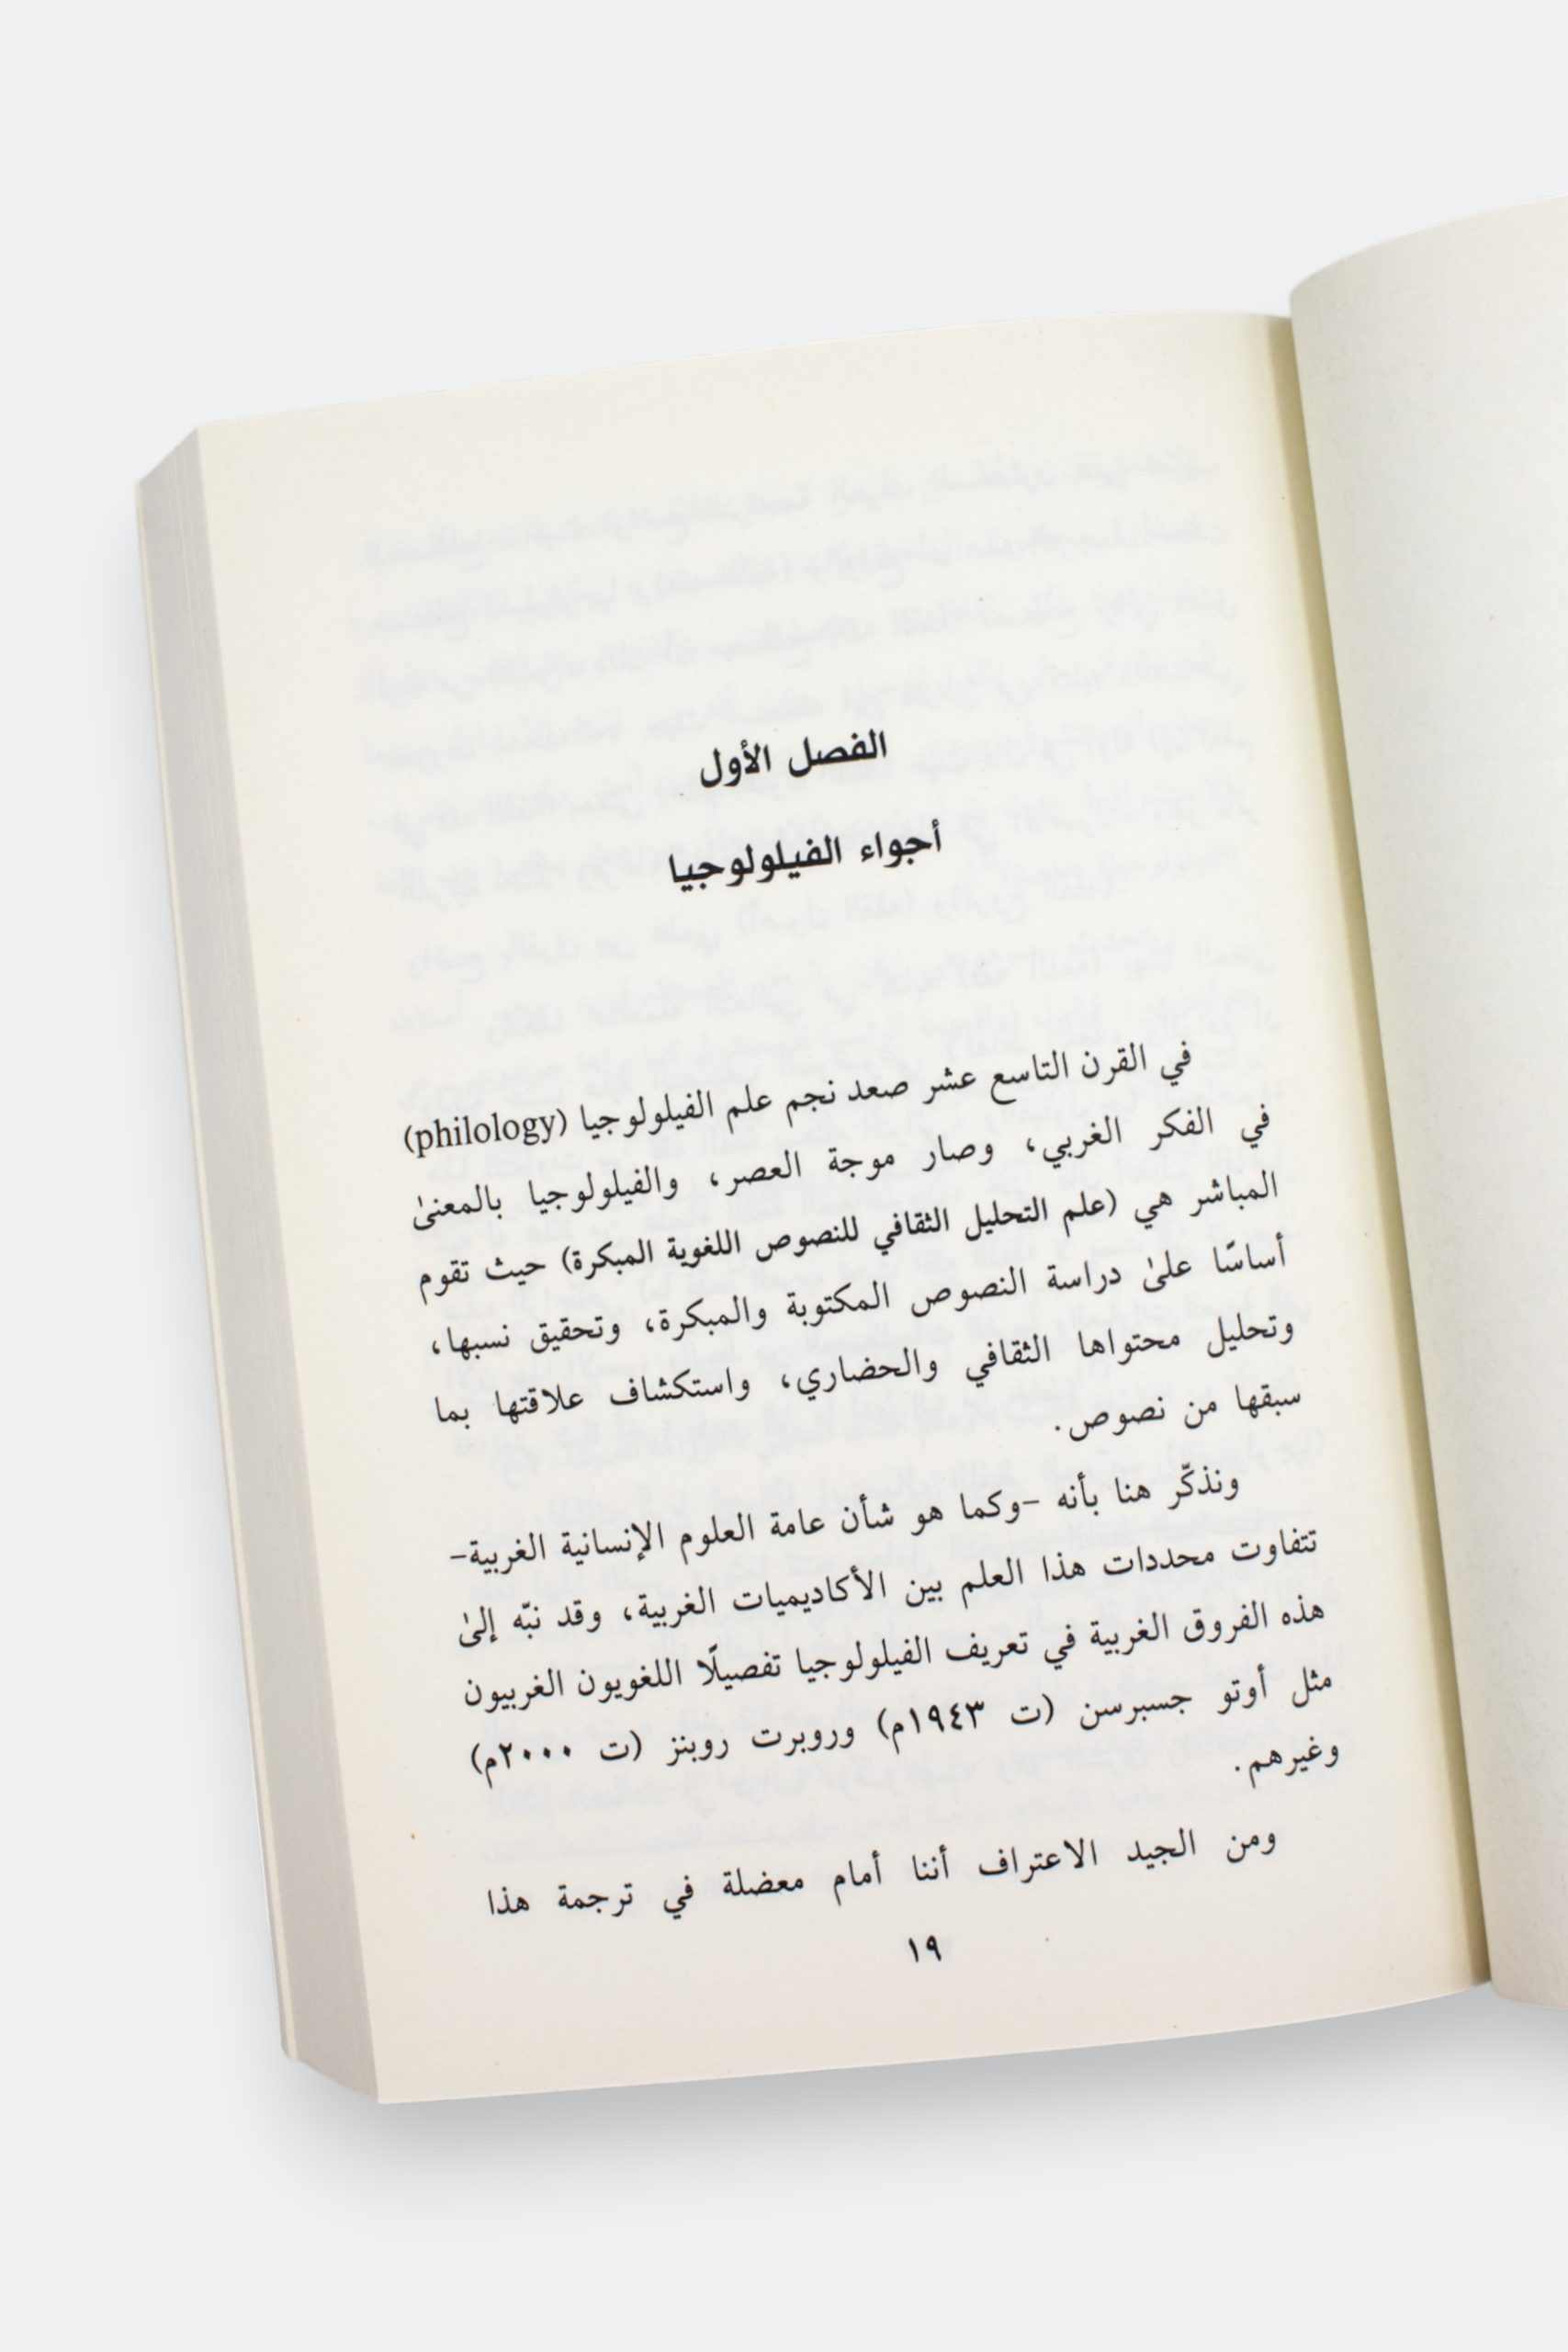 الفصل الأول
أجواء الفيلولوجيا
في القرن التاسع عشر صعد نجم علم الفيلولوجيا (philology)
في الفكر الغربي، وصار موجة العصر، والفيلولوجيا بالمعنىٰ
المباشر هي (علم التحليل الثقافي للنصوص اللغوية المبكرة) حيث تقوم
أساسًا علىٰ دراسة النصوص المكتوبة والمبكرة، وتحقيق نسبها،
وتحليل محتواها الثقافي والحضاري، واستكشاف علاقتها بما
سبقها من نصوص.
ونذكّر هنا بأنه -وكما هو شأن عامة العلوم الإنسانية الغربية-
تتفاوت محددات هذا العلم بين الأكاديميات الغربية، وقد نبّه إلىٰ
هذه الفروق الغربية في تعريف الفيلولوجيا تفصيلًا اللغويون الغربيون
مثل أوتو جسبرسن (ت ١٩٤٣م) وروبرت روبنز (ت ٢٠٠٠م)
وغيرهم.
ومن الجيد الاعتراف أننا أمام معضلة في ترجمة هذا
١٩